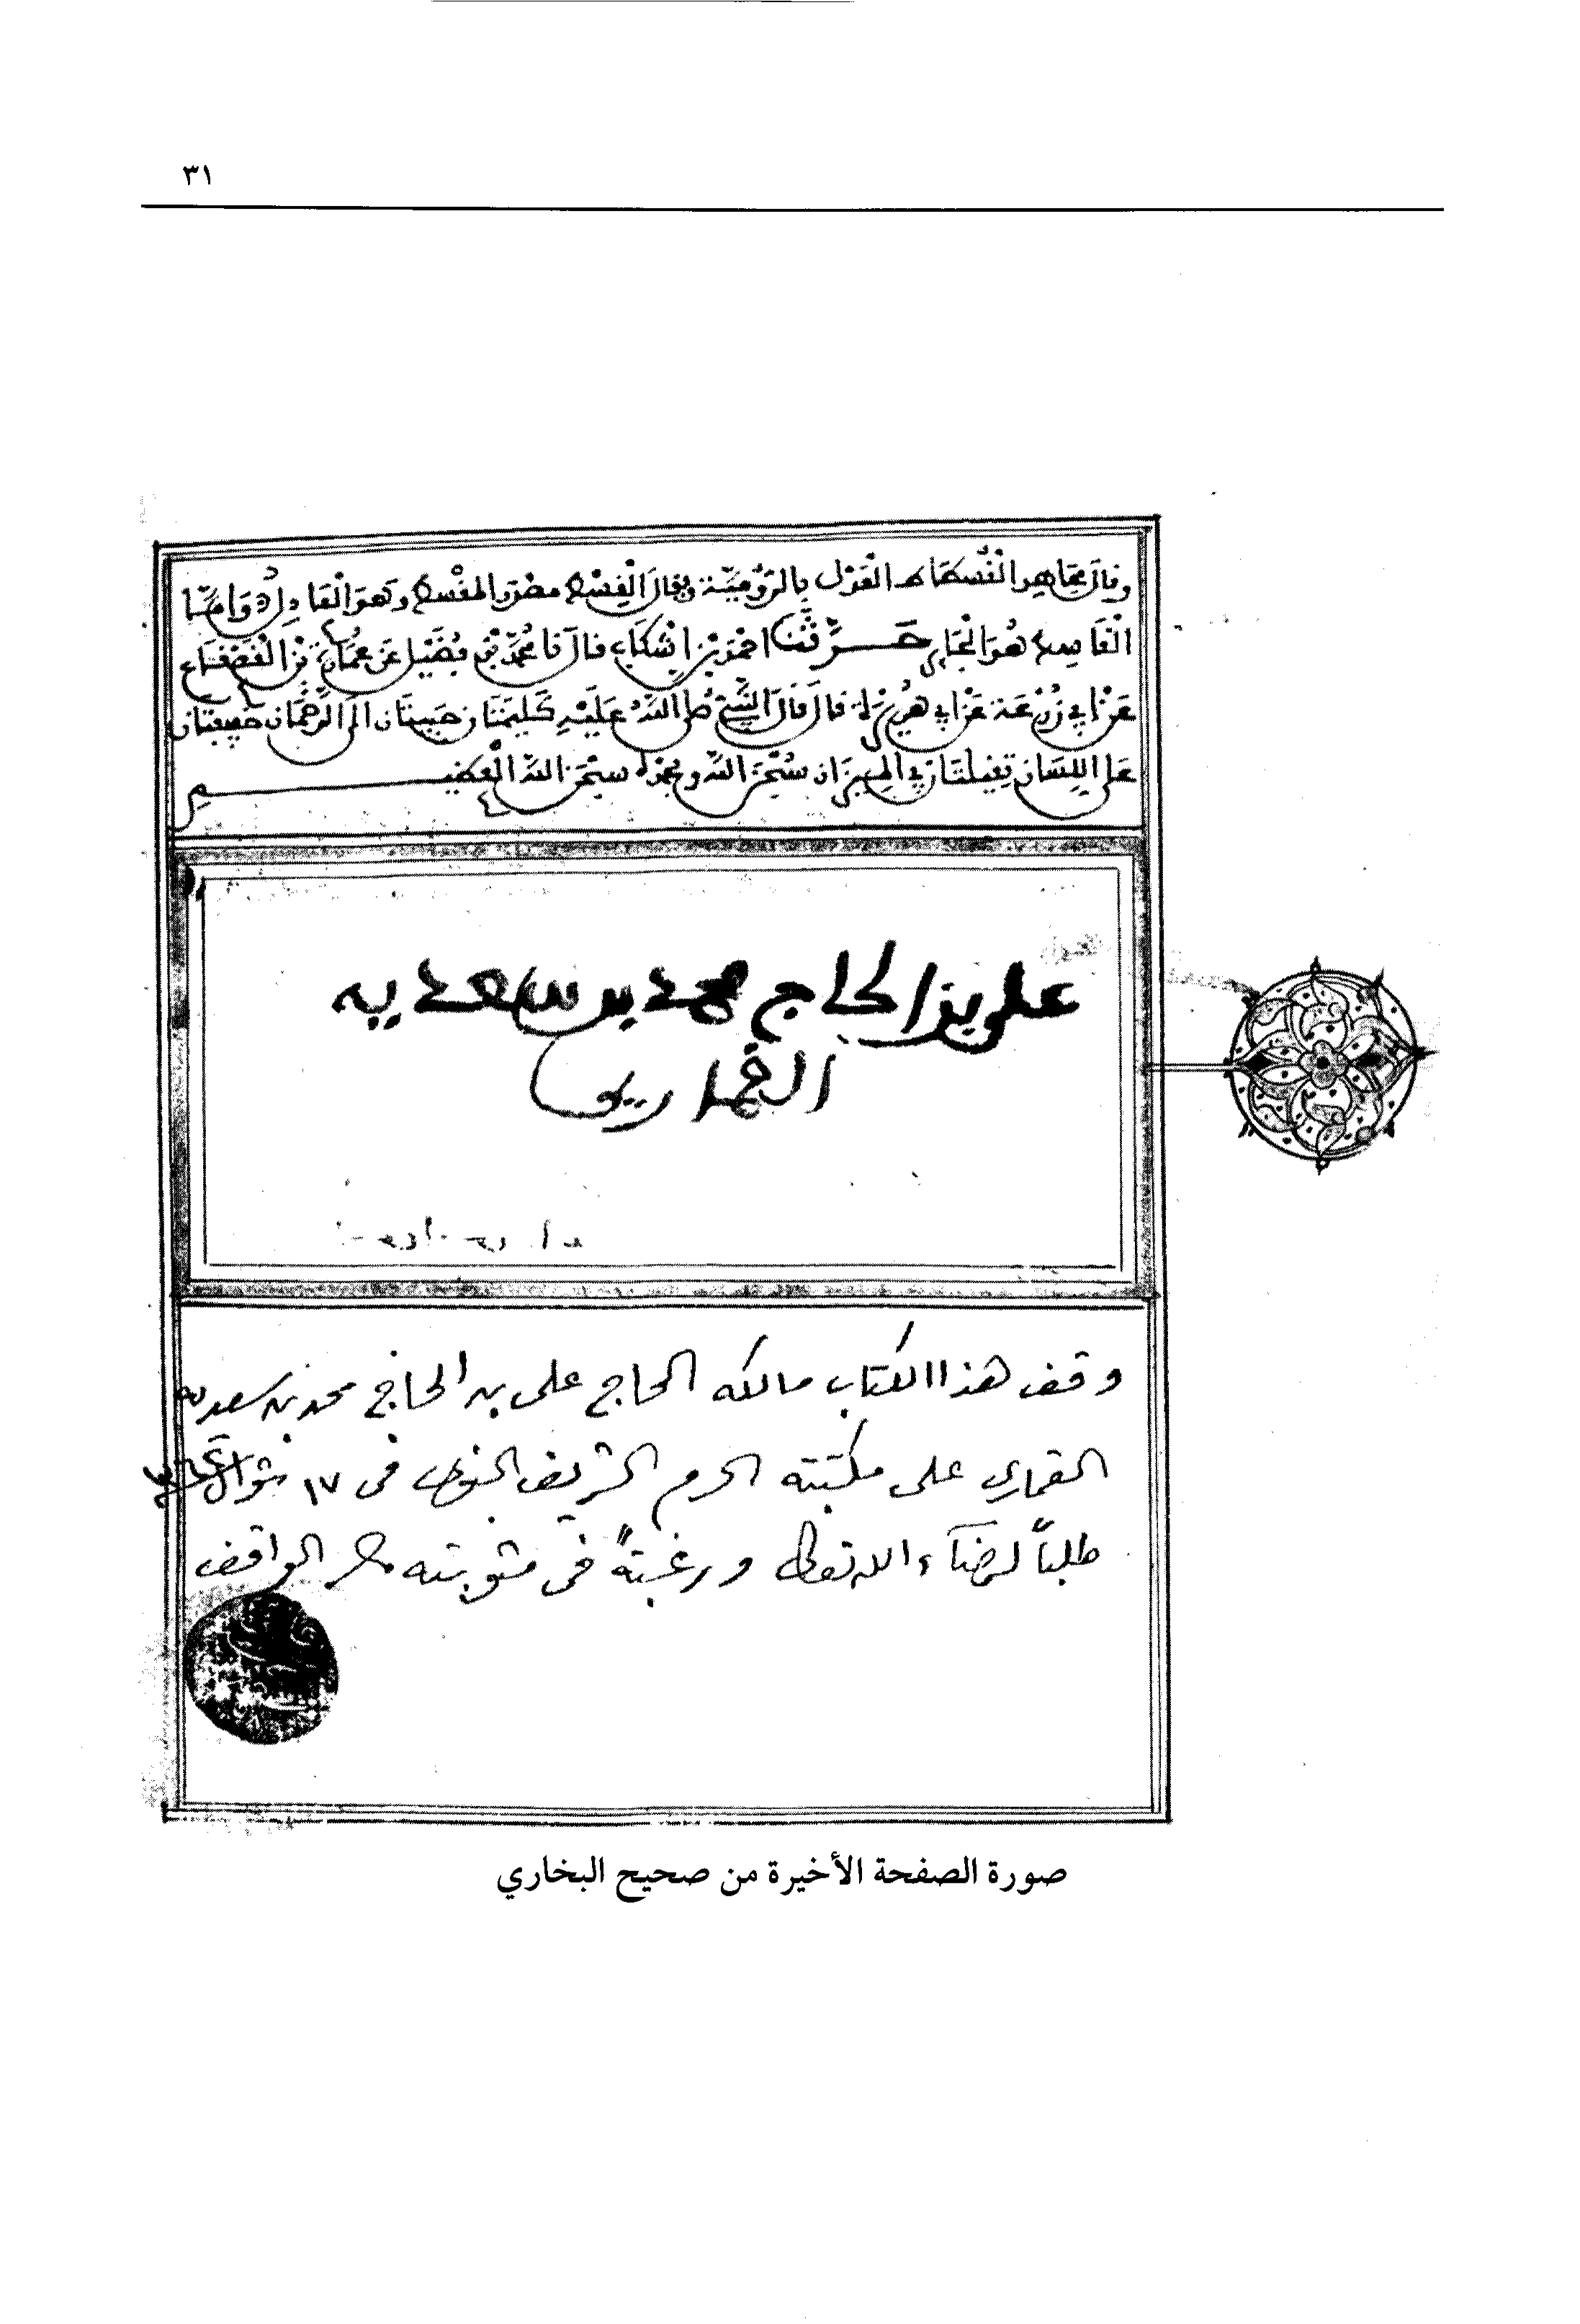 ٣١
وقال مجاهد القسطاس العدل بالرومية ويقال القسط مصدر المقسط وهو العادل واما
القاسط هو الجاير حدثنا احمد بن اشكاب قال نا محمد بن فضيل عن عمارة بن القعقاع
عن ابي زرعة عن ابي هريرة قال قال النبي صلى الله عليه كلمتان حبيبتان الى الرحمان خفيفتان
على اللسان ثقيلتان في الميزان سبحن الله وبحمده سبحن الله العظيم
علي بن الحاج محمد بن سعديه
القماري
وقف هذا الكتاب مالكه الحاج على بن الحاج محمد بن سعديه
القماري على مكتبته الحرم الشريف النبوي في ١٧ شوال
طلباً لرضآء الله تعالى ورغبتةً في مثوبته الواقف
صورة الصفحة الأخيرة من صحيح البخاري